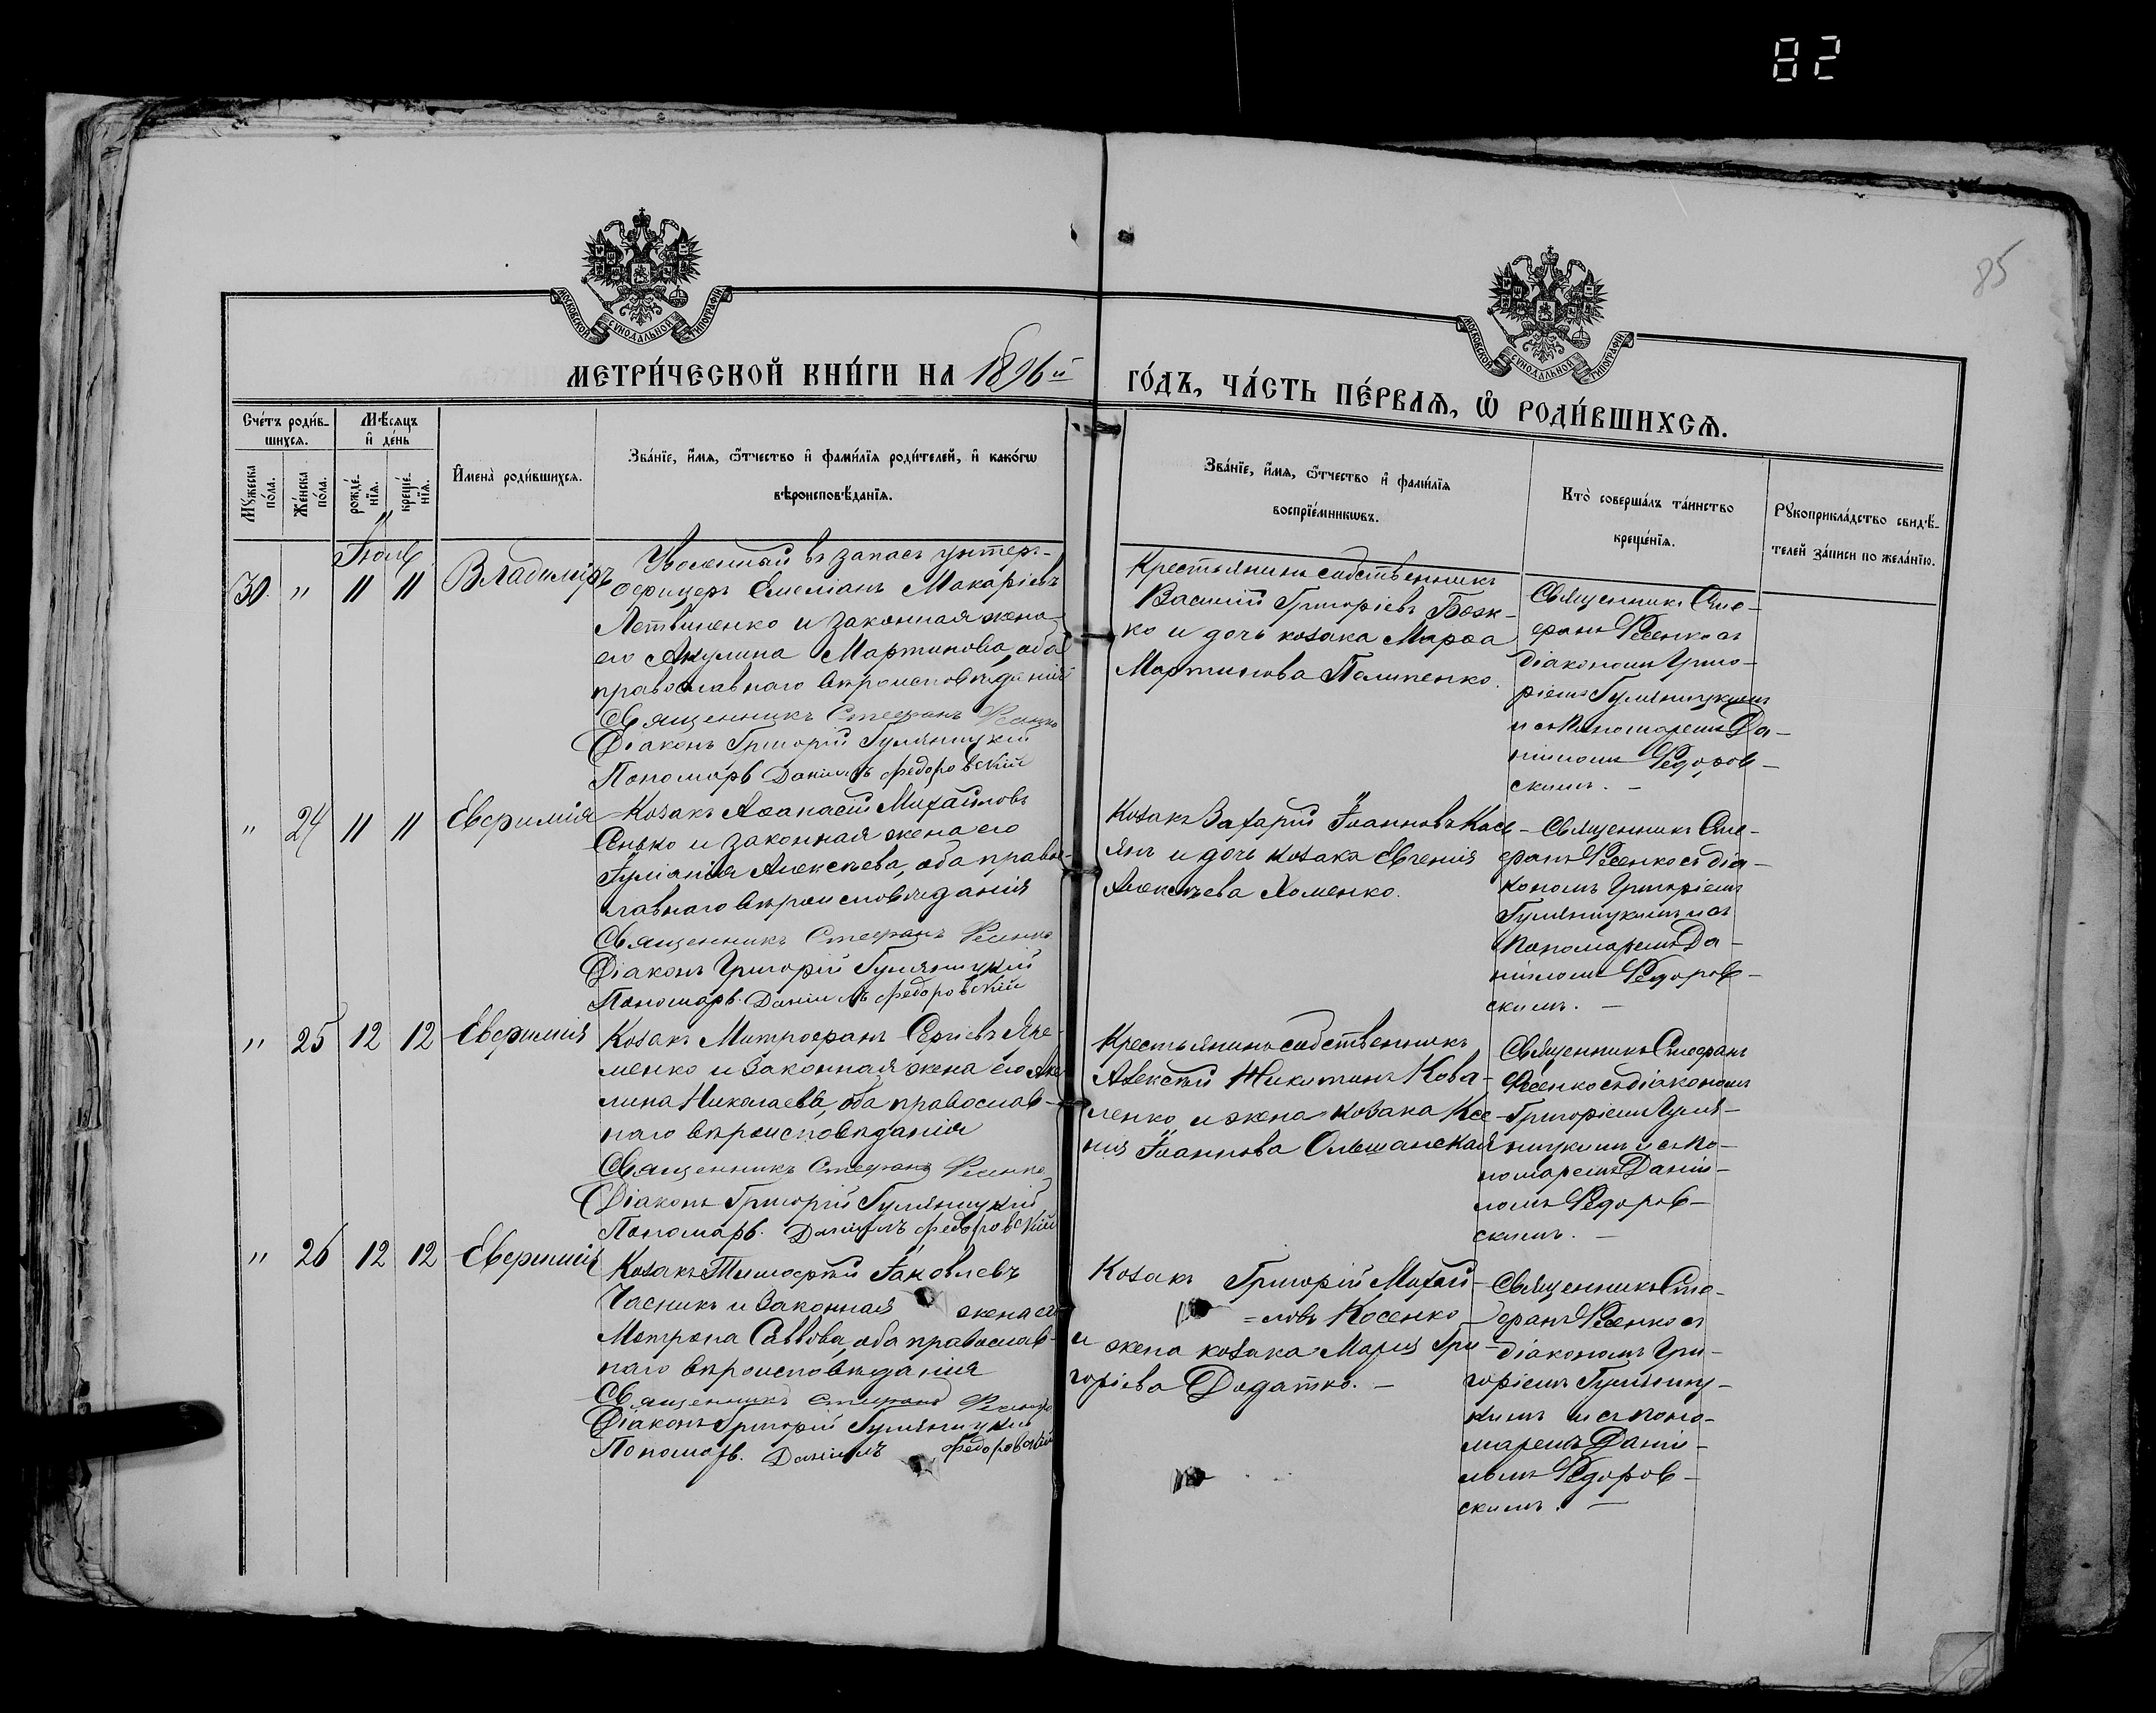 82
85
МОСКОВСКОЙ СѴНОДАЛЬНОЙ ТИПОГРАФІИ
МОСКОВСКОЙ СѴНОДАЛЬНОЙ ТИПОГРАФІИ
МЕТРИ́ЧЕСКОЙ КНИ́ГИ НА 1896й
ГО́ДЪ, ЧА́СТЬ ПЕ́РВАѦ, Ѡ҆ РОДИ́ВШИХСѦ.
Сче́тъ роди́в-
шихсѧ.
Мѣ́сѧцъ
и҆ де́нь
Мꙋ́жеска
по́ла.
Же́нска
по́ла.
рожде́-
нїѧ.
креще́-
нїѧ.
И҆мена̀ роди́вшихсѧ.
Зва́нїе, и҆́мѧ, ѻ҆́тчество и҆ фами́лїѧ роди́телей, и҆ како́гѡ
вѣроисповѣ́данїѧ.
Зва́нїе, и҆́мѧ, ѻ҆́тчество и҆ фами́лїѧ
воспрїе́мникѡвъ.
Кто̀ соверша́лъ та́инство
креще́нїѧ.
Рꙋкоприкла́дство свидѣ́-
телей за́писи по жела́нїю.
Іюль
30. " 11 11 Владиміръ
Уволенный въ запасъ унтеръ-
офицеръ Емеліанъ Макаріевъ
Летвиненко и законная жена
его Акулина Мартинова, оба
православнаго вѣроисповѣданія
Священникъ Стефанъ Ѳесенко
Діаконъ Григорій Гуляницкій
Пономарь Даніилъ Федоровскій
Крестьянинъ собственникъ
Василій Григоріевъ Бож-
ко и дочь козака Марѳа
Мартинова Палипенко.
Священникъ Сте-
фанъ Ѳесенко съ
діакономъ Григо-
ріемъ Гуляницкимъ
и съ пономаремъ Да-
ніиломъ Ѳедоров-
скимъ. -
" 24 11 11 Евфимія
Козакъ Аѳанасій Михайловъ
Сенько и законная жена его
Іуліанія Алексѣева, оба правос-
лавнаго вѣроисповѣданія
Священникъ Стефанъ Ѳесенко
Діаконъ Григорій Гуляницкій
Пономарь. Даніилъ Федоровскій
Козакъ Захарій Іоанновъ Кась-
янъ и дочь козака Евгенія
Алексѣева Хоменко.
Священникъ Сте-
фанъ Ѳесенко съ діа-
кономъ Григоріемъ
Гуляницкимъ и съ
пономаремъ Да-
ніиломъ Ѳедоров-
скимъ. -
" 25 12 12 Евфимія
Козакъ Митрофанъ Сергіевъ Яре-
менко и законная жена его Аке-
лина Николаева, оба православ-
наго вѣроисповѣданія
Священникъ Стефанъ Ѳесенко
Діаконъ Григорій Гуляницкій
Пономарь. Даніилъ Федоровскій
Крестьянинъ собственникъ
Алексѣй Никитинъ Кова-
ленко и жена козака Ксе-
нія Іоаннова Ольшанская
Священникъ Стефанъ
Ѳесенко съ діакономъ
Григоріемъ Гуля-
ницкимъ и съ по-
номаремъ Даніи-
ломъ Ѳедоров-
скимъ. -
" 26 12 12 Евфимія
Козакъ Тимоѳей Іаковлевъ
Часникъ и законная жена его
Мотрона Саввова, оба православ-
наго вѣроисповѣданія
Священникъ Стефанъ Ѳесенко
Діаконъ Григорій Гуляницкій
Пономарь. Даніилъ Федоровскій
Козакъ Григорій Михай-
=ловъ Косенко
и жена козака Марія Гри-
горіева Додатко. -
Священникъ Сте-
фанъ Ѳесенко съ
діакономъ Гри-
горіемъ Гуляниц-
кимъ и съ поно-
маремъ Даніи-
ломъ Ѳедоров-
скимъ. -